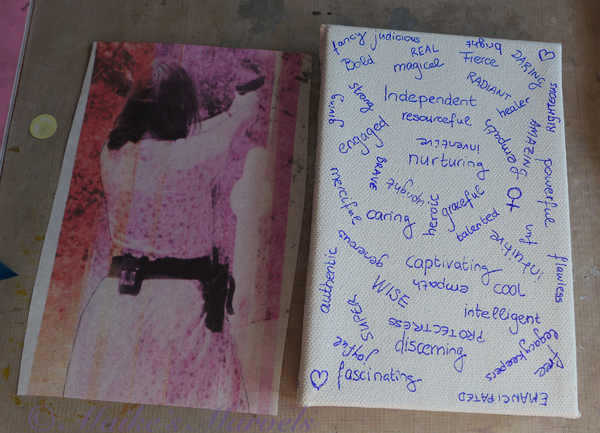 fancy judicious
Bold
REAL
magical
bright
Fierce
DARING
RADIANT
righteous
strong
giving
Independent
resourceful
healer
AMAZING
engaged
inventive
empath
BRAVE
nurturing
powerful
naughty
merciful
graceful
caring
heroic
talented
fun
intuitive
generous
captivating
flawless
authentic
empath
cool
WISE
intelligent
SUPER
PROTECTRESS
joyful
discerning
free
legacykeepers
fascinating
EMANCIPATED
© Meike's Marvels